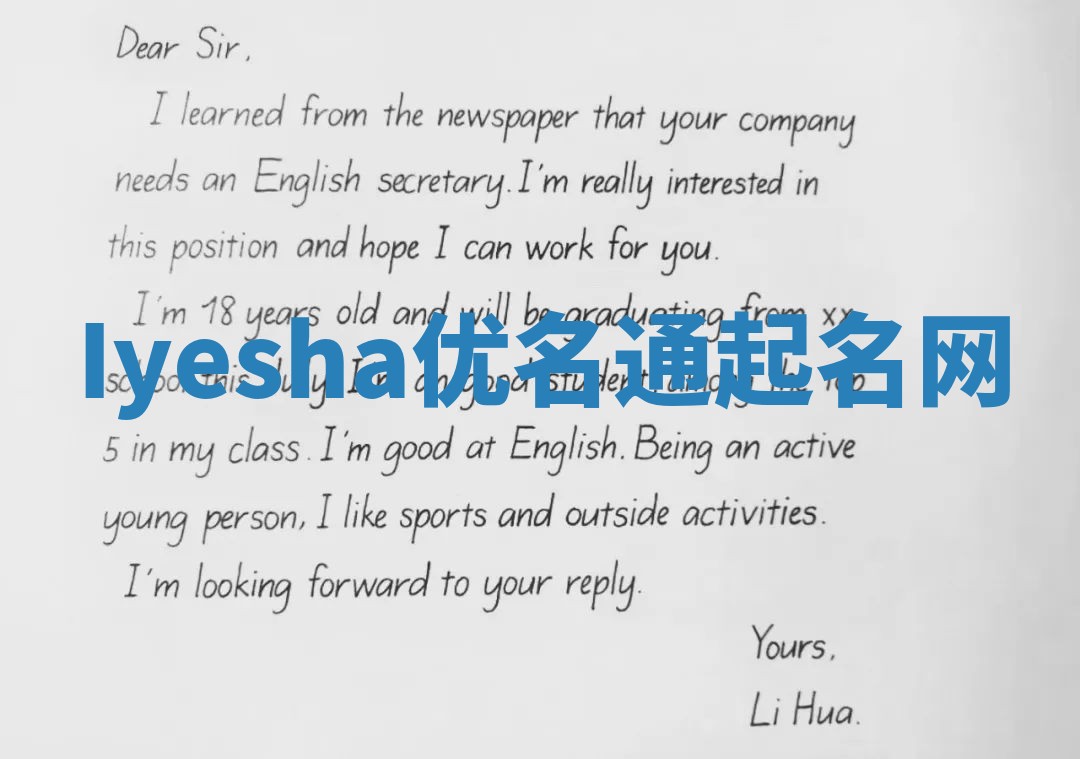 Dear Sir,
I learned from the newspaper that your company
needs an English secretary. I'm really interested in
this position and hope I can work for you.
I'm 18 years old and will be graduating from xx
Iyesha优名通起名网
school this July. I'm an good student among the top
5 in my class. I'm good at English. Being an active
young person, I like sports and outside activities.
I'm looking forward to your reply.
Yours,
Li Hua.